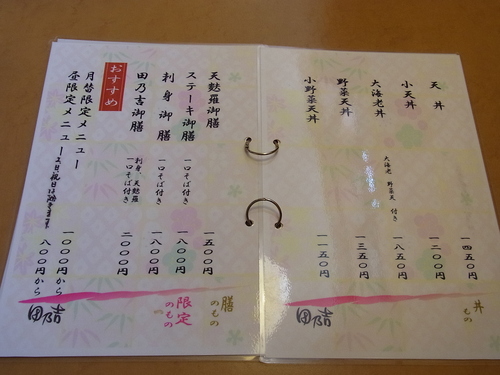 天丼 一四五〇円
小天丼 一二〇〇円
大海老丼 一八五〇円
大海老 野菜天 付き
野菜天丼 一三五〇円
小野菜天丼 一一五〇円
丼もの
田乃吉
天麩羅御膳 一五〇〇円
ステーキ御膳 一口そば付き 一八〇〇円
刺身御膳 一口そば付き 一八〇〇円
田乃吉御膳 刺身、天麩羅 一口そば付き 二〇〇〇円
おすすめ
月替限定メニュー 一〇〇〇円から
昼限定メニュー 八〇〇円から
膳のもの
限定のもの
田乃吉